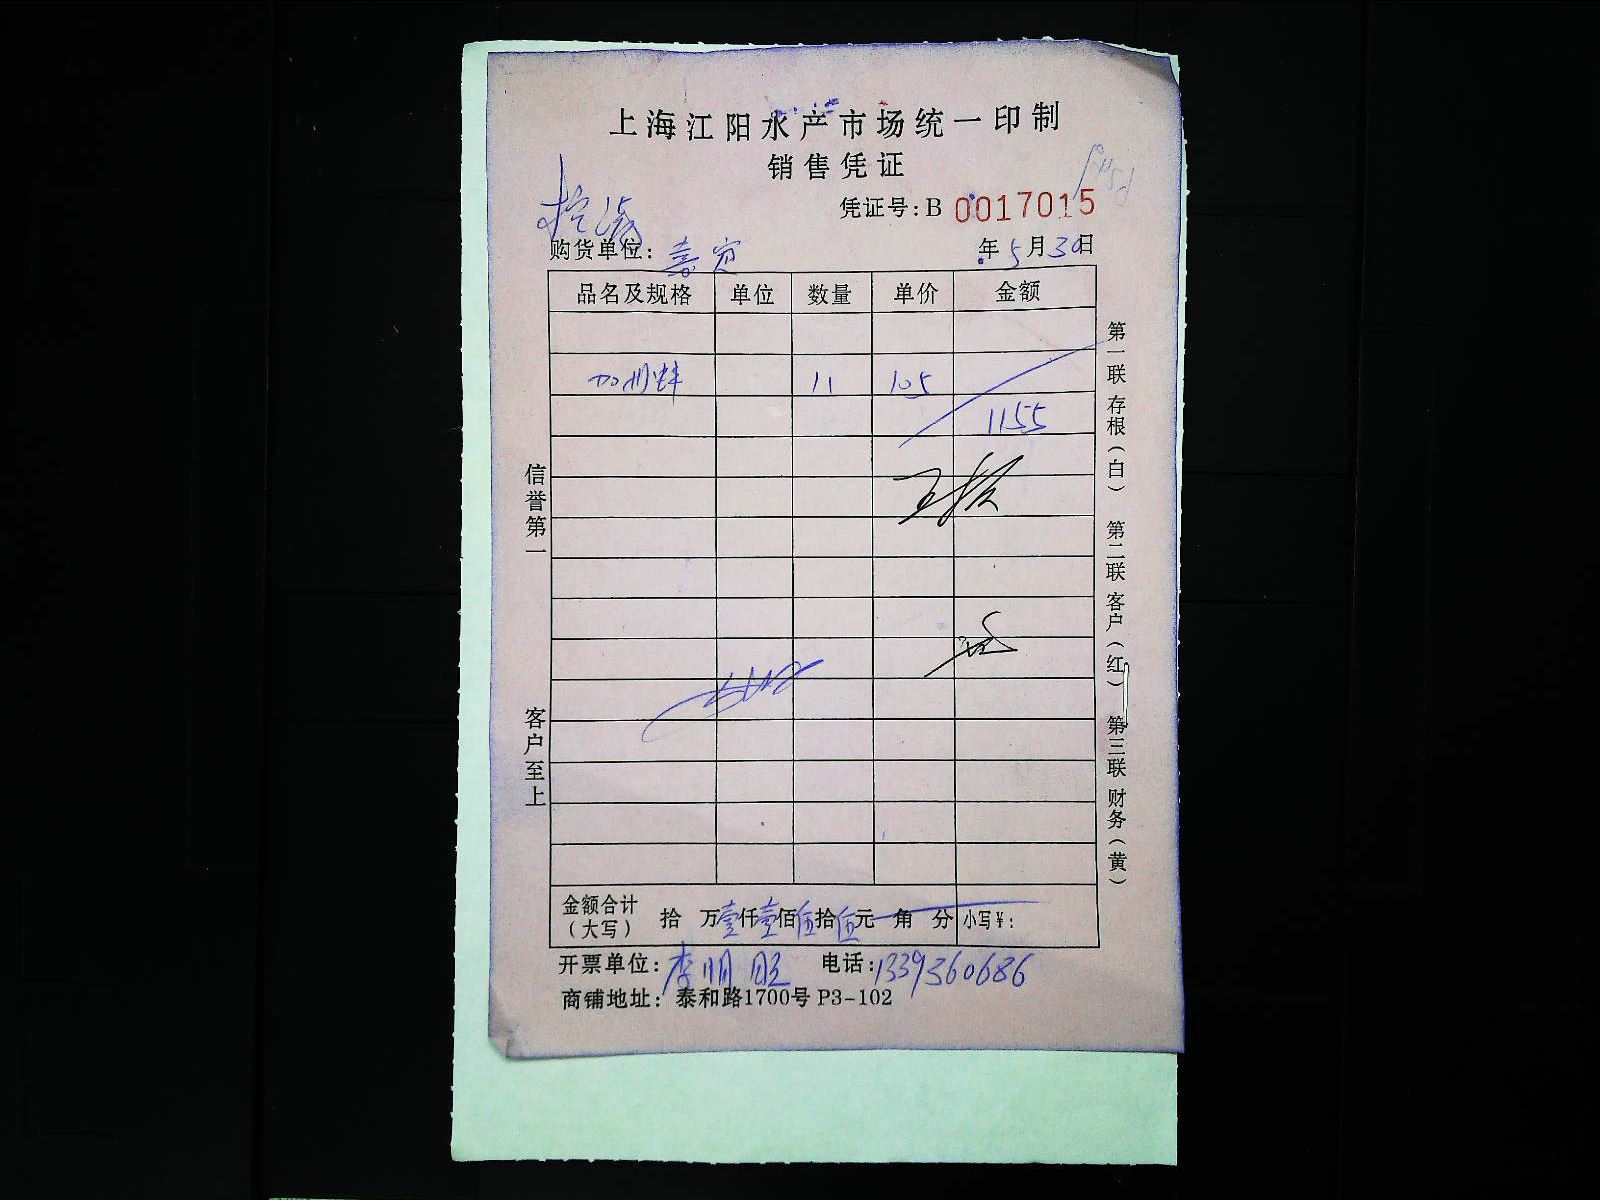 上海江阳水产市场统一印制
销售凭证
凭证号：B 0017015
购货单位：嘉宾
年 5月30日
品名及规格 单位 数量 单价 金额
加州蚌 11 105
1155
信誉第一
客户至上
第一联 存根（白） 第二联 客户（红） 第三联 财务（黄）
金额合计（大写） 拾 万壹仟壹佰伍拾伍元 角 分 小写¥：
开票单位：李明旺 电话：1339360686
商铺地址：泰和路1700号 P3-102